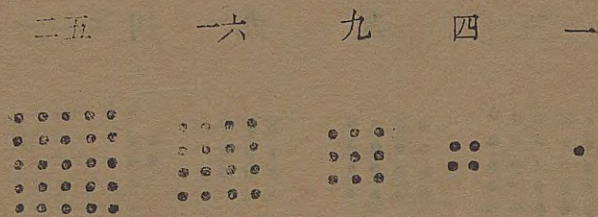 二五 一六 九 四 一